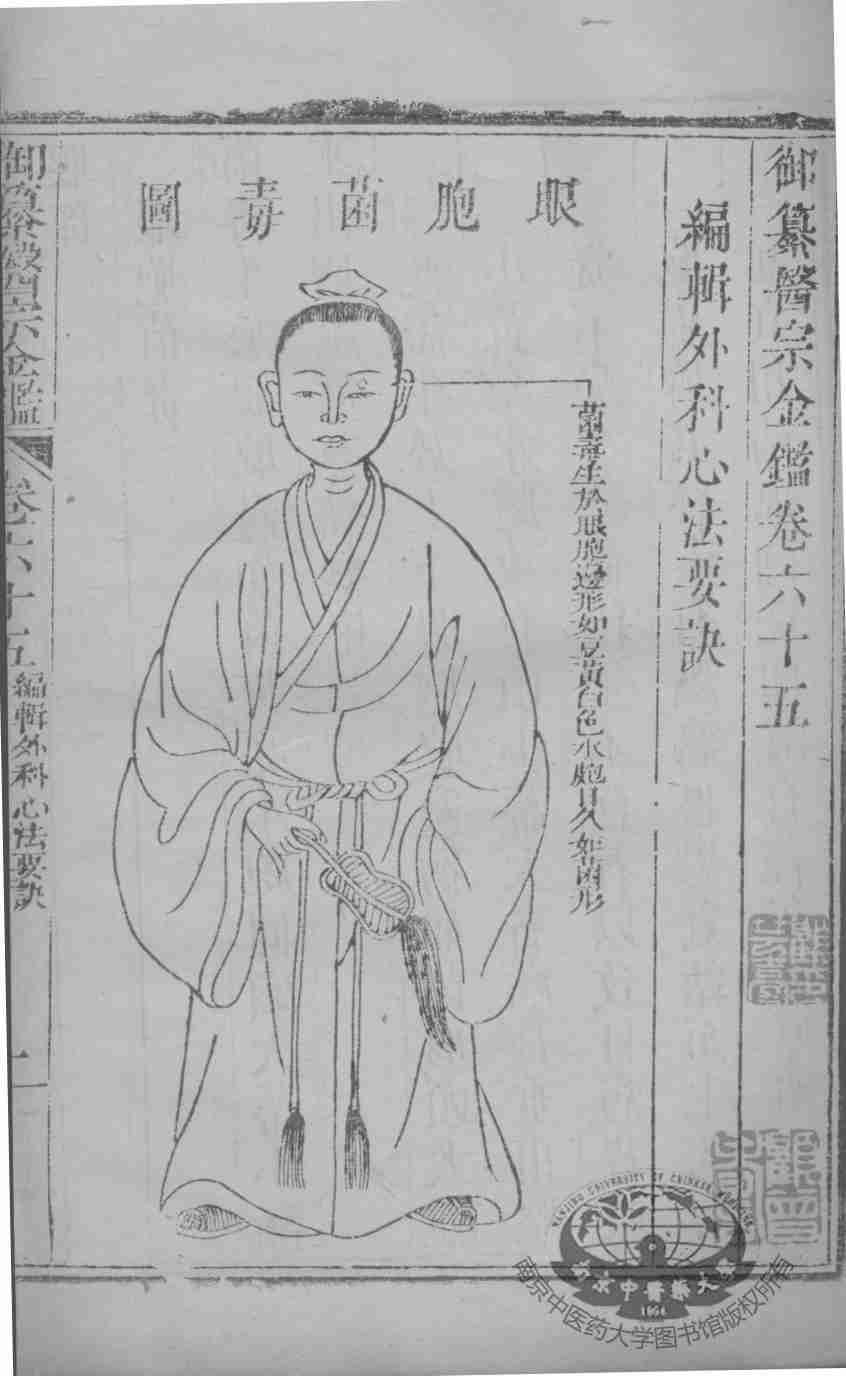 御纂醫宗金鑑卷六十五
編輯外科心法要訣
眼胞菌毒圖
菌毒生於眼胞邊形如豆黃白色水皰日久如菌形
御纂醫宗金鑑 卷六十五 編輯外科心法要訣 一
NANJING UNIVERSITY OF CHINESE MEDICINE
南京中醫藥大學
南京中医药大学图书馆版权所有